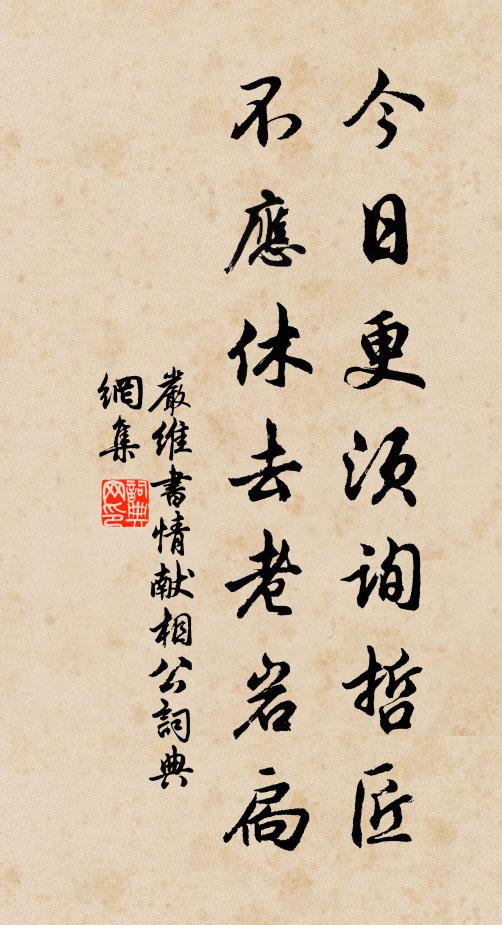 今日更須詢哲匠
不應休去老岩扃
嚴維書情献相公詞典
網集
詞典
网印